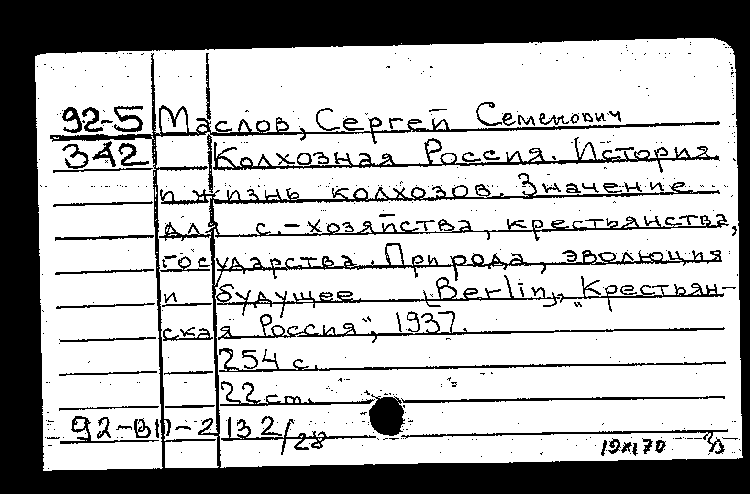 92-5 Маслов, Сергей Семенович
342 Колхозная Россия. История
и жизнь колхозов. Значение
для с.-хозяйства, крестьянства,
государства. Природа, эволюция
и будущее [Berlin], „Крестьян-
ская Россия", 1937.
254 с.
22 cm.
92-ВП-2132/28